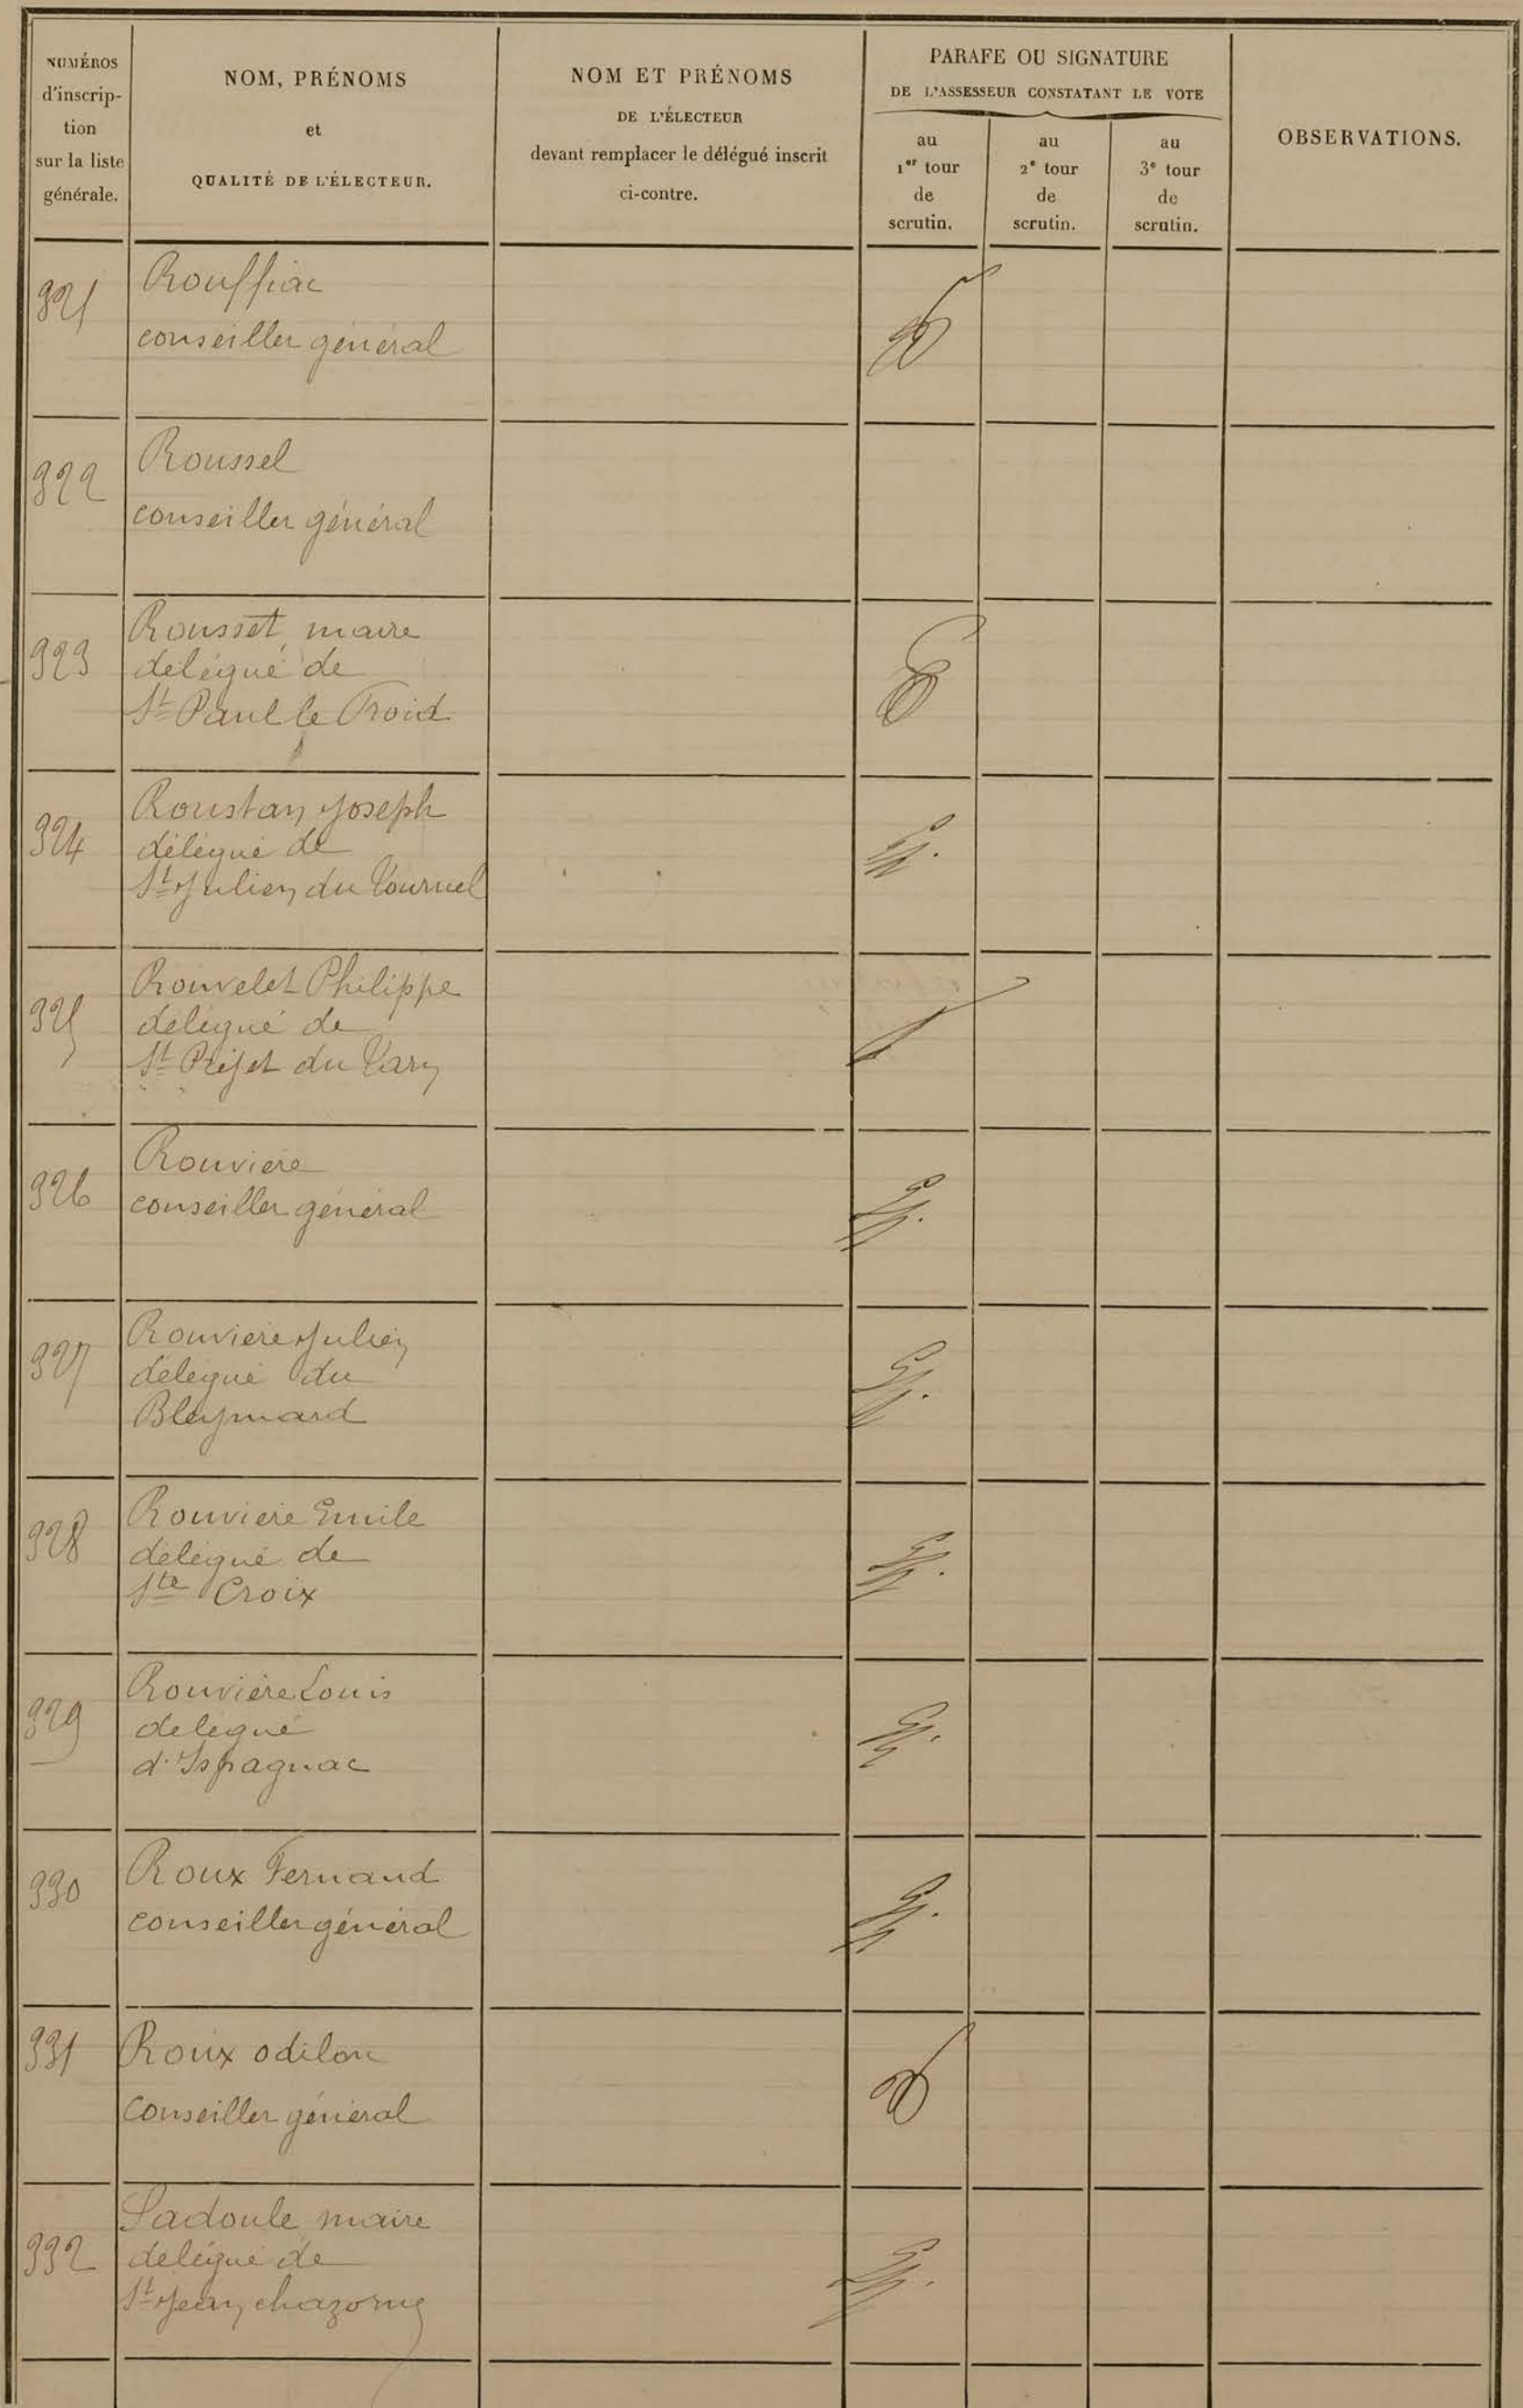 NUMÉROS
d'inscrip-
tion
sur la liste
générale.
NOM, PRÉNOMS
et
QUALITÉ DE L'ÉLECTEUR.
NOM ET PRÉNOMS
DE L'ÉLECTEUR
devant remplacer le délégué inscrit
ci-contre.
PARAFE OU SIGNATURE
DE L'ASSESSEUR CONSTATANT LE VOTE
au
1er tour
de
scrutin.
au
2e tour
de
scrutin.
au
3e tour
de
scrutin.
OBSERVATIONS.
321
Rouffiac
conseiller général
322
Roussel
conseiller général
323
Rousset maire
délégué de
St Paul le Froid
324
Roustan Joseph
délégué de
St Julien du Tournel
325
Rouvelet Philippe
délégué de
St Préjet du Tarn
326
Rouvière
conseiller général
327
Rouvière Julien
délégué du
Bleymard
328
Rouvière Emile
délégué de
Ste Croix
329
Rouvière Louis
délégué
d'Ispagnac
330
Roux Fernand
conseiller général
331
Roux odilon
conseiller général
332
Sadoule maire
délégué de
St Jean chazorne